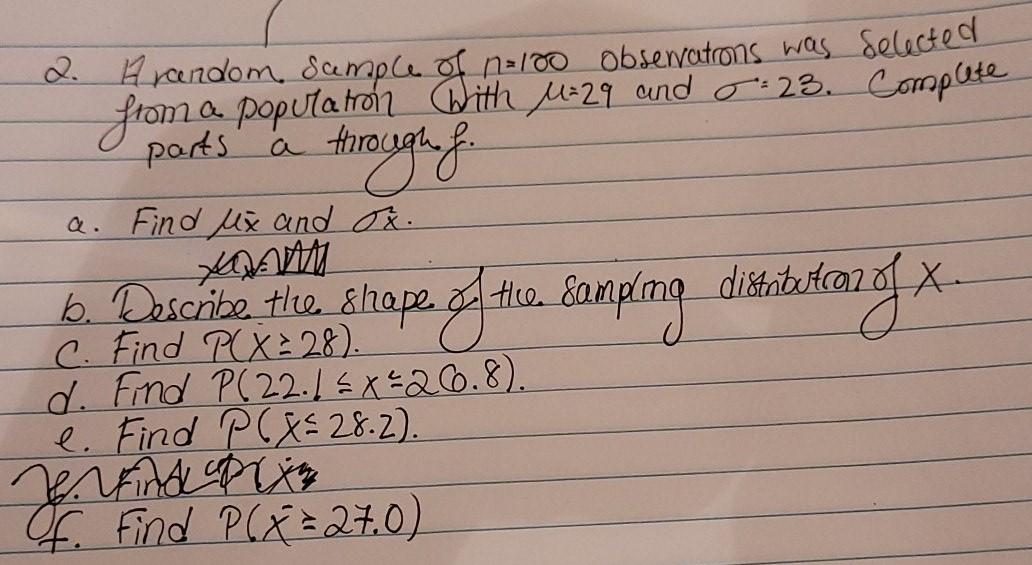 2. A random sample of n=100 observations was selected
from a population with μ=29 and σ=23. Complete
parts a through f.
a. Find μx̄ and σx̄.
b. Describe the shape of the sampling distribution of x.
c. Find P(x̄≥28).
d. Find P(22.1≤x≤26.8).
e. Find P(x̄≤28.2).
f. Find P(x̄≥27.0)